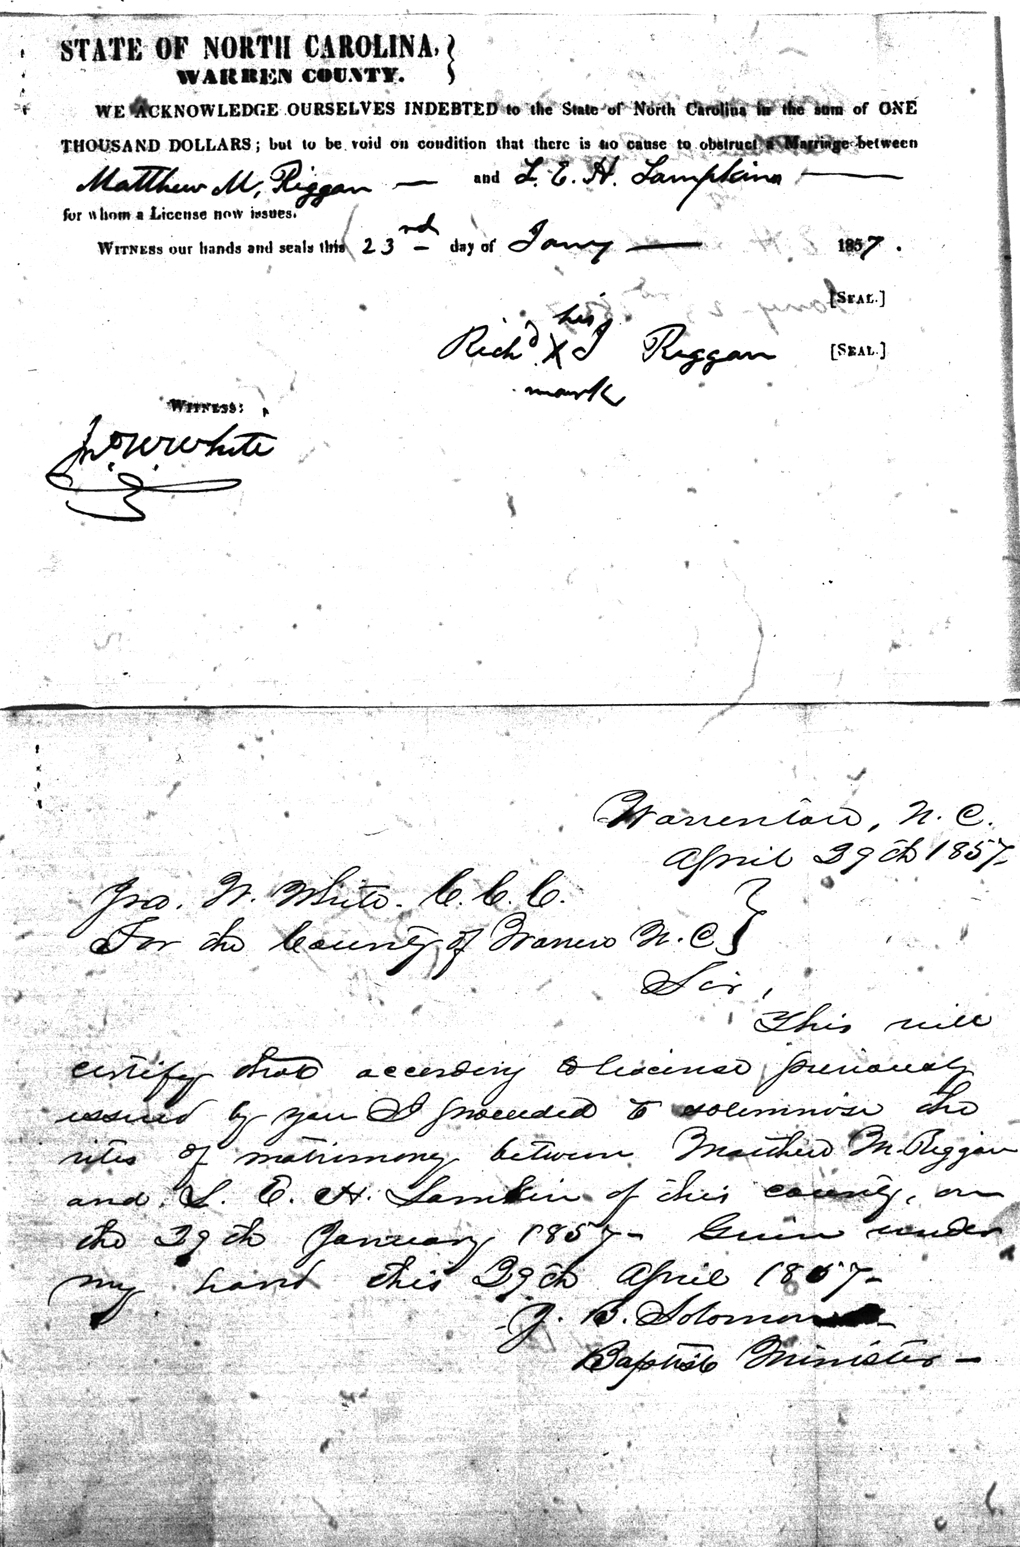 STATE OF NORTH CAROLINA,
WARREN COUNTY.
WE ACKNOWLEDGE OURSELVES INDEBTED to the State of North Carolina in the sum of ONE
THOUSAND DOLLARS; but to be void on condition that there is no cause to obstruct a Marriage between
Matthew M. Riggan — and L. E. H. Lampkins —
for whom a License now issues.
WITNESS our hands and seals this 23rd day of Jany — 1857.
[SEAL.]
his
Richd X J Riggan [SEAL.]
mark
WITNESS:
Jno W White
Warrenton, N. C.
April 29th 1857-
Jno. W. White. C. C. C.
For the County of Warren N. C.
Sir,
This will
certify that according to license previously
issued by you I proceeded to solemnise the
rites of matrimony between Matthew M. Riggan
and L. E. H. Lamkin of this county, on
the 29th January 1857- Given under
my hand this 29th April 1857-
J. B. Solomon
Baptist Minister -